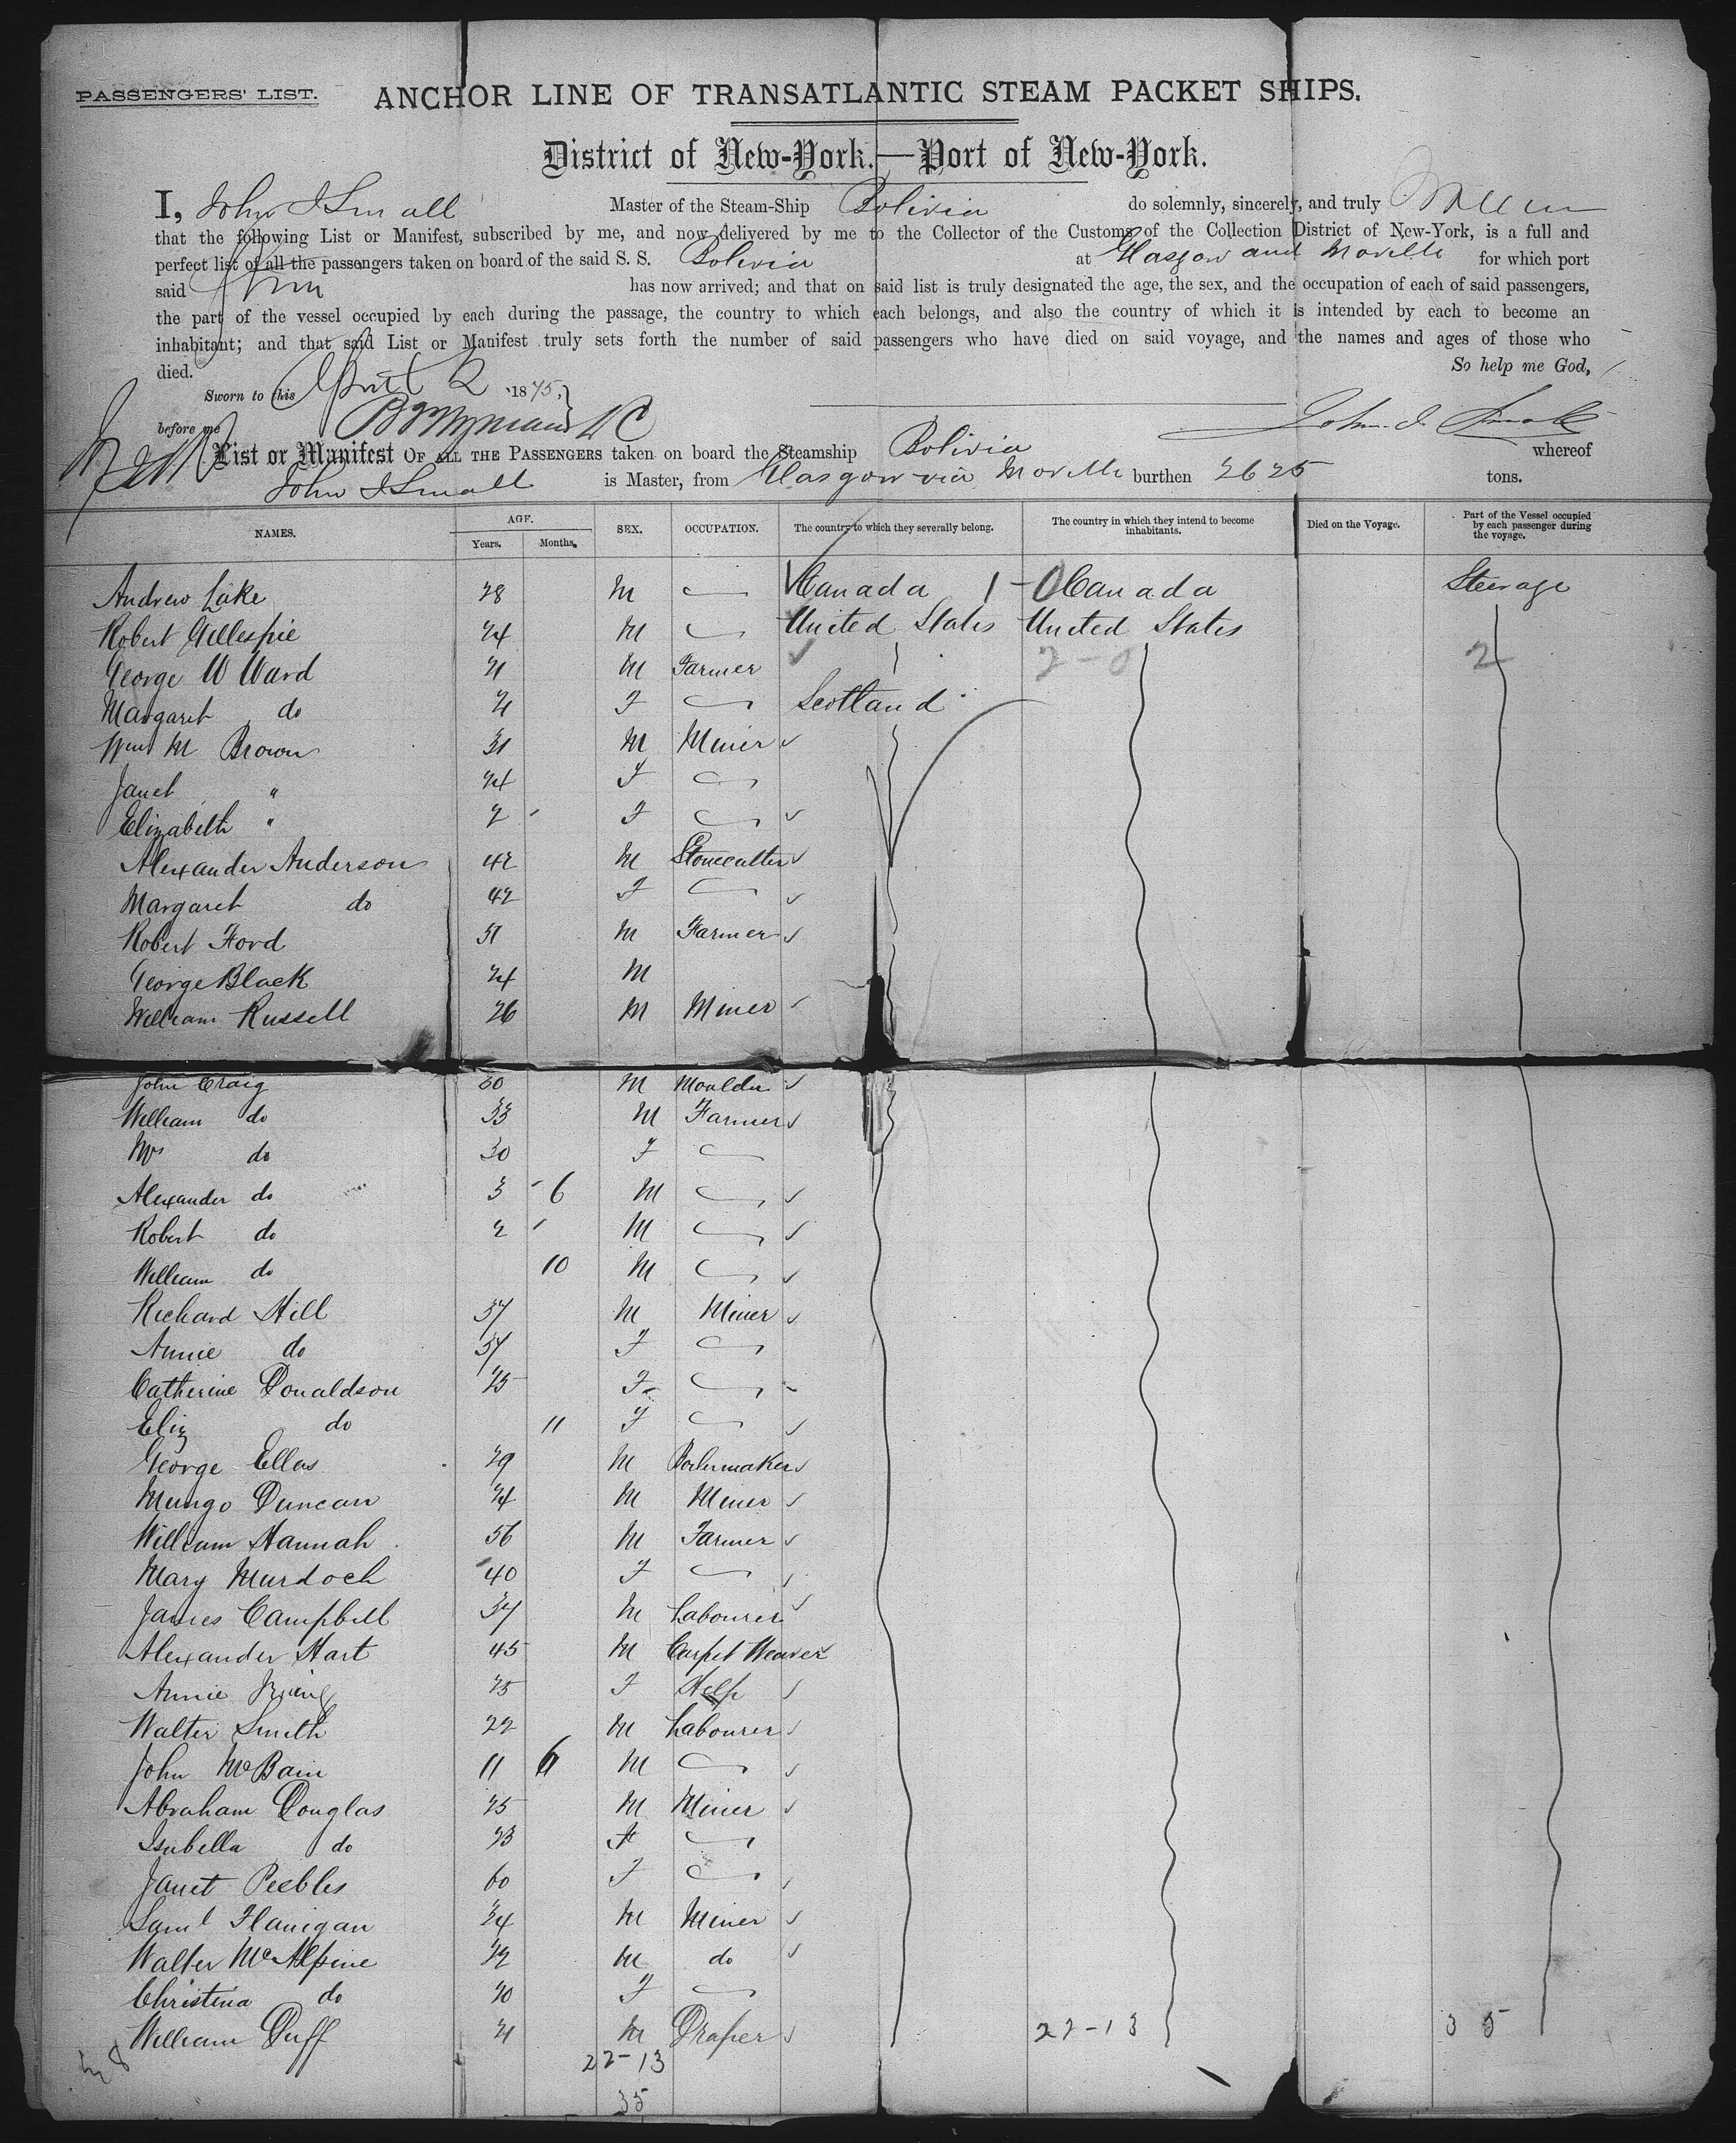 PASSENGERS' LIST.
ANCHOR LINE OF TRANSATLANTIC STEAM PACKET SHIPS.
District of New-York.—Port of New-York.
I, John I Small Master of the Steam-Ship Bolivia do solemnly, sincerely, and truly
that the following List or Manifest, subscribed by me, and now delivered by me to the Collector of the Customs of the Collection District of New-York, is a full and
perfect list of all the passengers taken on board of the said S. S. Bolivia at Glasgow and Moville for which port
said has now arrived; and that on said list is truly designated the age, the sex, and the occupation of each of said passengers,
the part of the vessel occupied by each during the passage, the country to which each belongs, and also the country of which it is intended by each to become an
inhabitant; and that said List or Manifest truly sets forth the number of said passengers who have died on said voyage, and the names and ages of those who
died. So help me God,
Sworn to this April 2 1875,
before me John I. Small
List or Manifest OF ALL THE PASSENGERS taken on board the Steamship Bolivia whereof
John I Small is Master, from Glasgow via Moville burthen 2625 tons.
NAMES. AGE. Years. Months. SEX. OCCUPATION. The country to which they severally belong. The country in which they intend to become inhabitants. Died on the Voyage. Part of the Vessel occupied by each passenger during the voyage.
Andrew Lake 28 M Canada 1-0 Canada Steerage
Robert Gillespie 24 M United States United States
George W Ward 21 M Farmer 2-0 2
Margaret do 21 F Scotland
Wm M Brown 31 M Miner
Janet " 24 F
Elizabeth " 2 F
Alexander Anderson 42 M Stonecutter
Margaret do 42 F
Robert Ford 51 M Farmer
George Black 24 M
William Russell 26 M Miner
John Craig 30 M Moulder
William do 33 M Farmer
Mrs do 30 F
Alexander do 3 6 M
Robert do 2 M
William do 10 M
Richard Hill 37 M Miner
Annie do 37 F
Catherine Donaldson 25 F
Eliz do 11 F
George Ellas 29 M Boilermaker
Mungo Duncan 24 M Miner
William Hannah 56 M Farmer
Mary Murdoch 40 F
James Campbell 37 M Labourer
Alexander Hart 45 M Carpet Weaver
Annie 25 F Help
Walter Smith 22 M Labourer
John McBain 11 6 M
Abraham Douglas 25 M Miner
Isabella do 23 F
Janet Peebles 60 F
Saml Flanigan 34 M Miner
Walter McAlpine 22 M do
Christina do 20 F
William Duff 21 M Draper 22-13 35
38 22-13
35